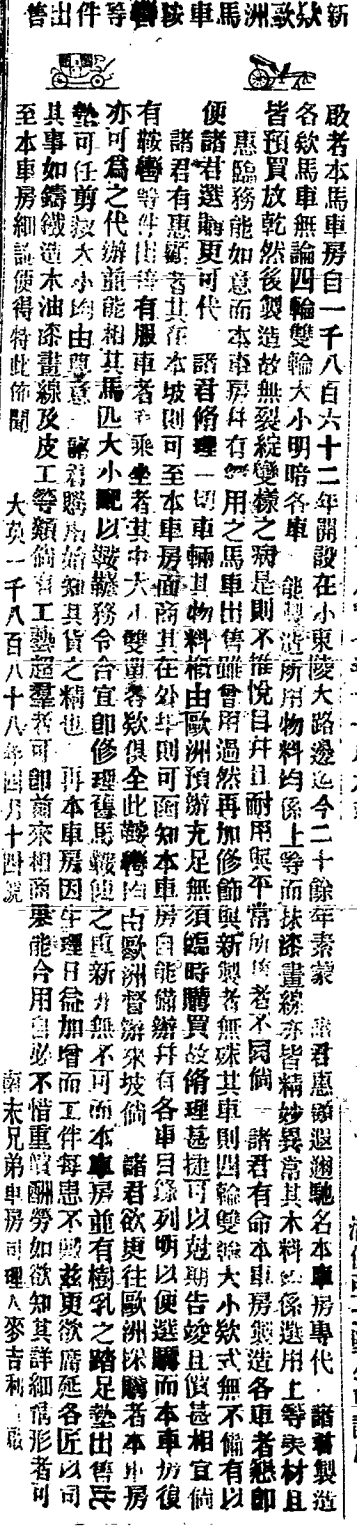 新欵歐洲馬車鞍轡等件出售
敬者本馬車房自一千八百六十二年開設在小東陵大路邊迄今二十餘年素蒙 諸君惠顧遐邇馳名本車房專代 諸君製造
各欵馬車無論四輪雙輪大小明暗各車 能製造所用物料均係上等而抹漆畫線亦皆精妙異常其木料 係選用上等美材且
皆預買放乾然後製造故無裂綻變樣之病是則不惟悅目幷且耐用與平常所售者不同倘 諸君有命本車房製造各車者懇即
惠臨務能如意而本車房幷有 用之馬車出售雖曾用過然再加修飾與新製者無殊其車則四輪雙輪大小欵式無不備有以
便諸君選購更可代 諸君脩理一切車輛其物料槪由歐洲預辦充足無須臨時購買故脩理甚捷可以尅期告竣且價甚相宜倘
諸君有惠顧者其在本坡則可至本車房面商其在外埠則可函知本車房自能備辦幷有各車目錄列明以便選購而本車房復
有鞍轡等件出售有服車者 乘坐者其中大小雙單各欵俱全此鞍轡均由歐洲督辦來坡倘 諸君欲更往歐洲採購者本車房
亦可爲之代辦並能相其馬匹大小配以鞍轡務令合宜即修理舊馬鞍使之重新亦無不可而本車房並有樹乳之踏足墊出售此
墊可任剪裁大小均由尊意 諸君購用始知其貨之精也 再本車房因生理日益加增而工件每患不敷茲更欲廣延各匠以司
其事如鑄鐵造木油漆畫線及皮工等類倘有工藝超羣者可即前來相商果能合用自必不惜重價酬勞如欲知其詳細情形者可
至本車房細詢便得特此佈聞 大英一千八百八十八年四月十四號 南末兄弟車房司理人麥吉利 啟